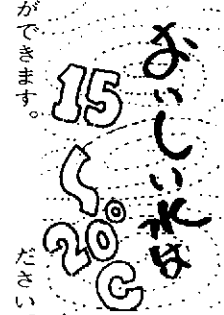 おいしい水は
15〜20℃
ださい
ができます。